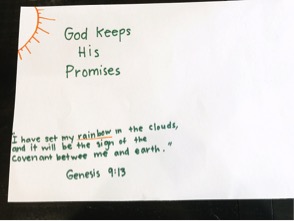 God Keeps
His
Promises
"I have set my rainbow in the clouds,
and it will be the sign of the
covenant betwee me and earth."
Genesis 9:13